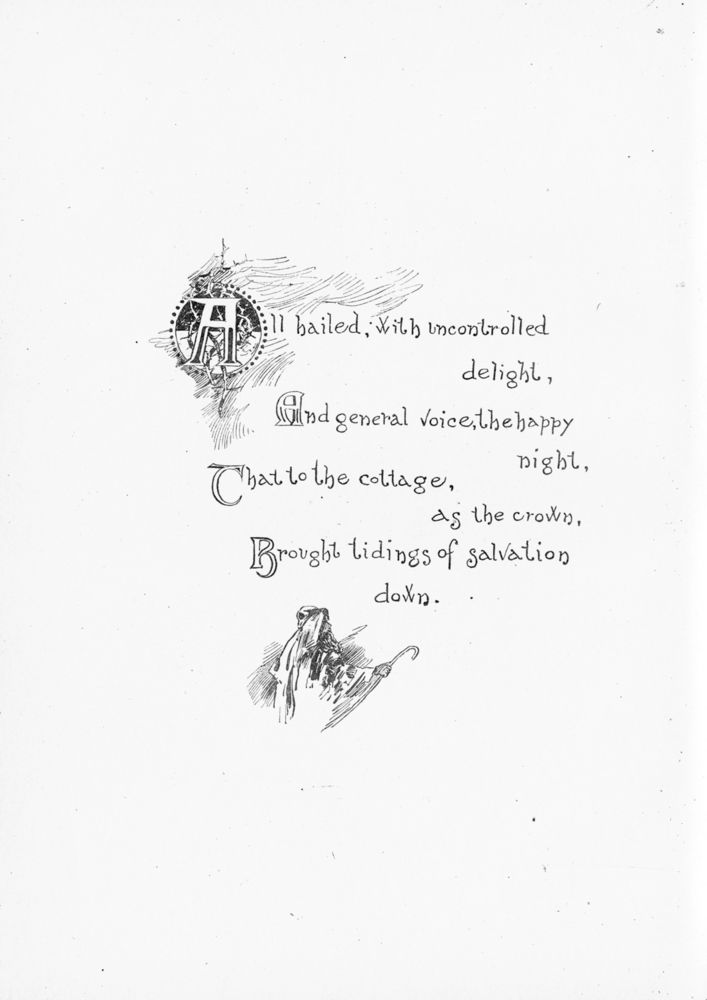 All hailed, with uncontrolled
delight,
And general voice, the happy
night,
That to the cottage,
as the crown,
Brought tidings of salvation
down.